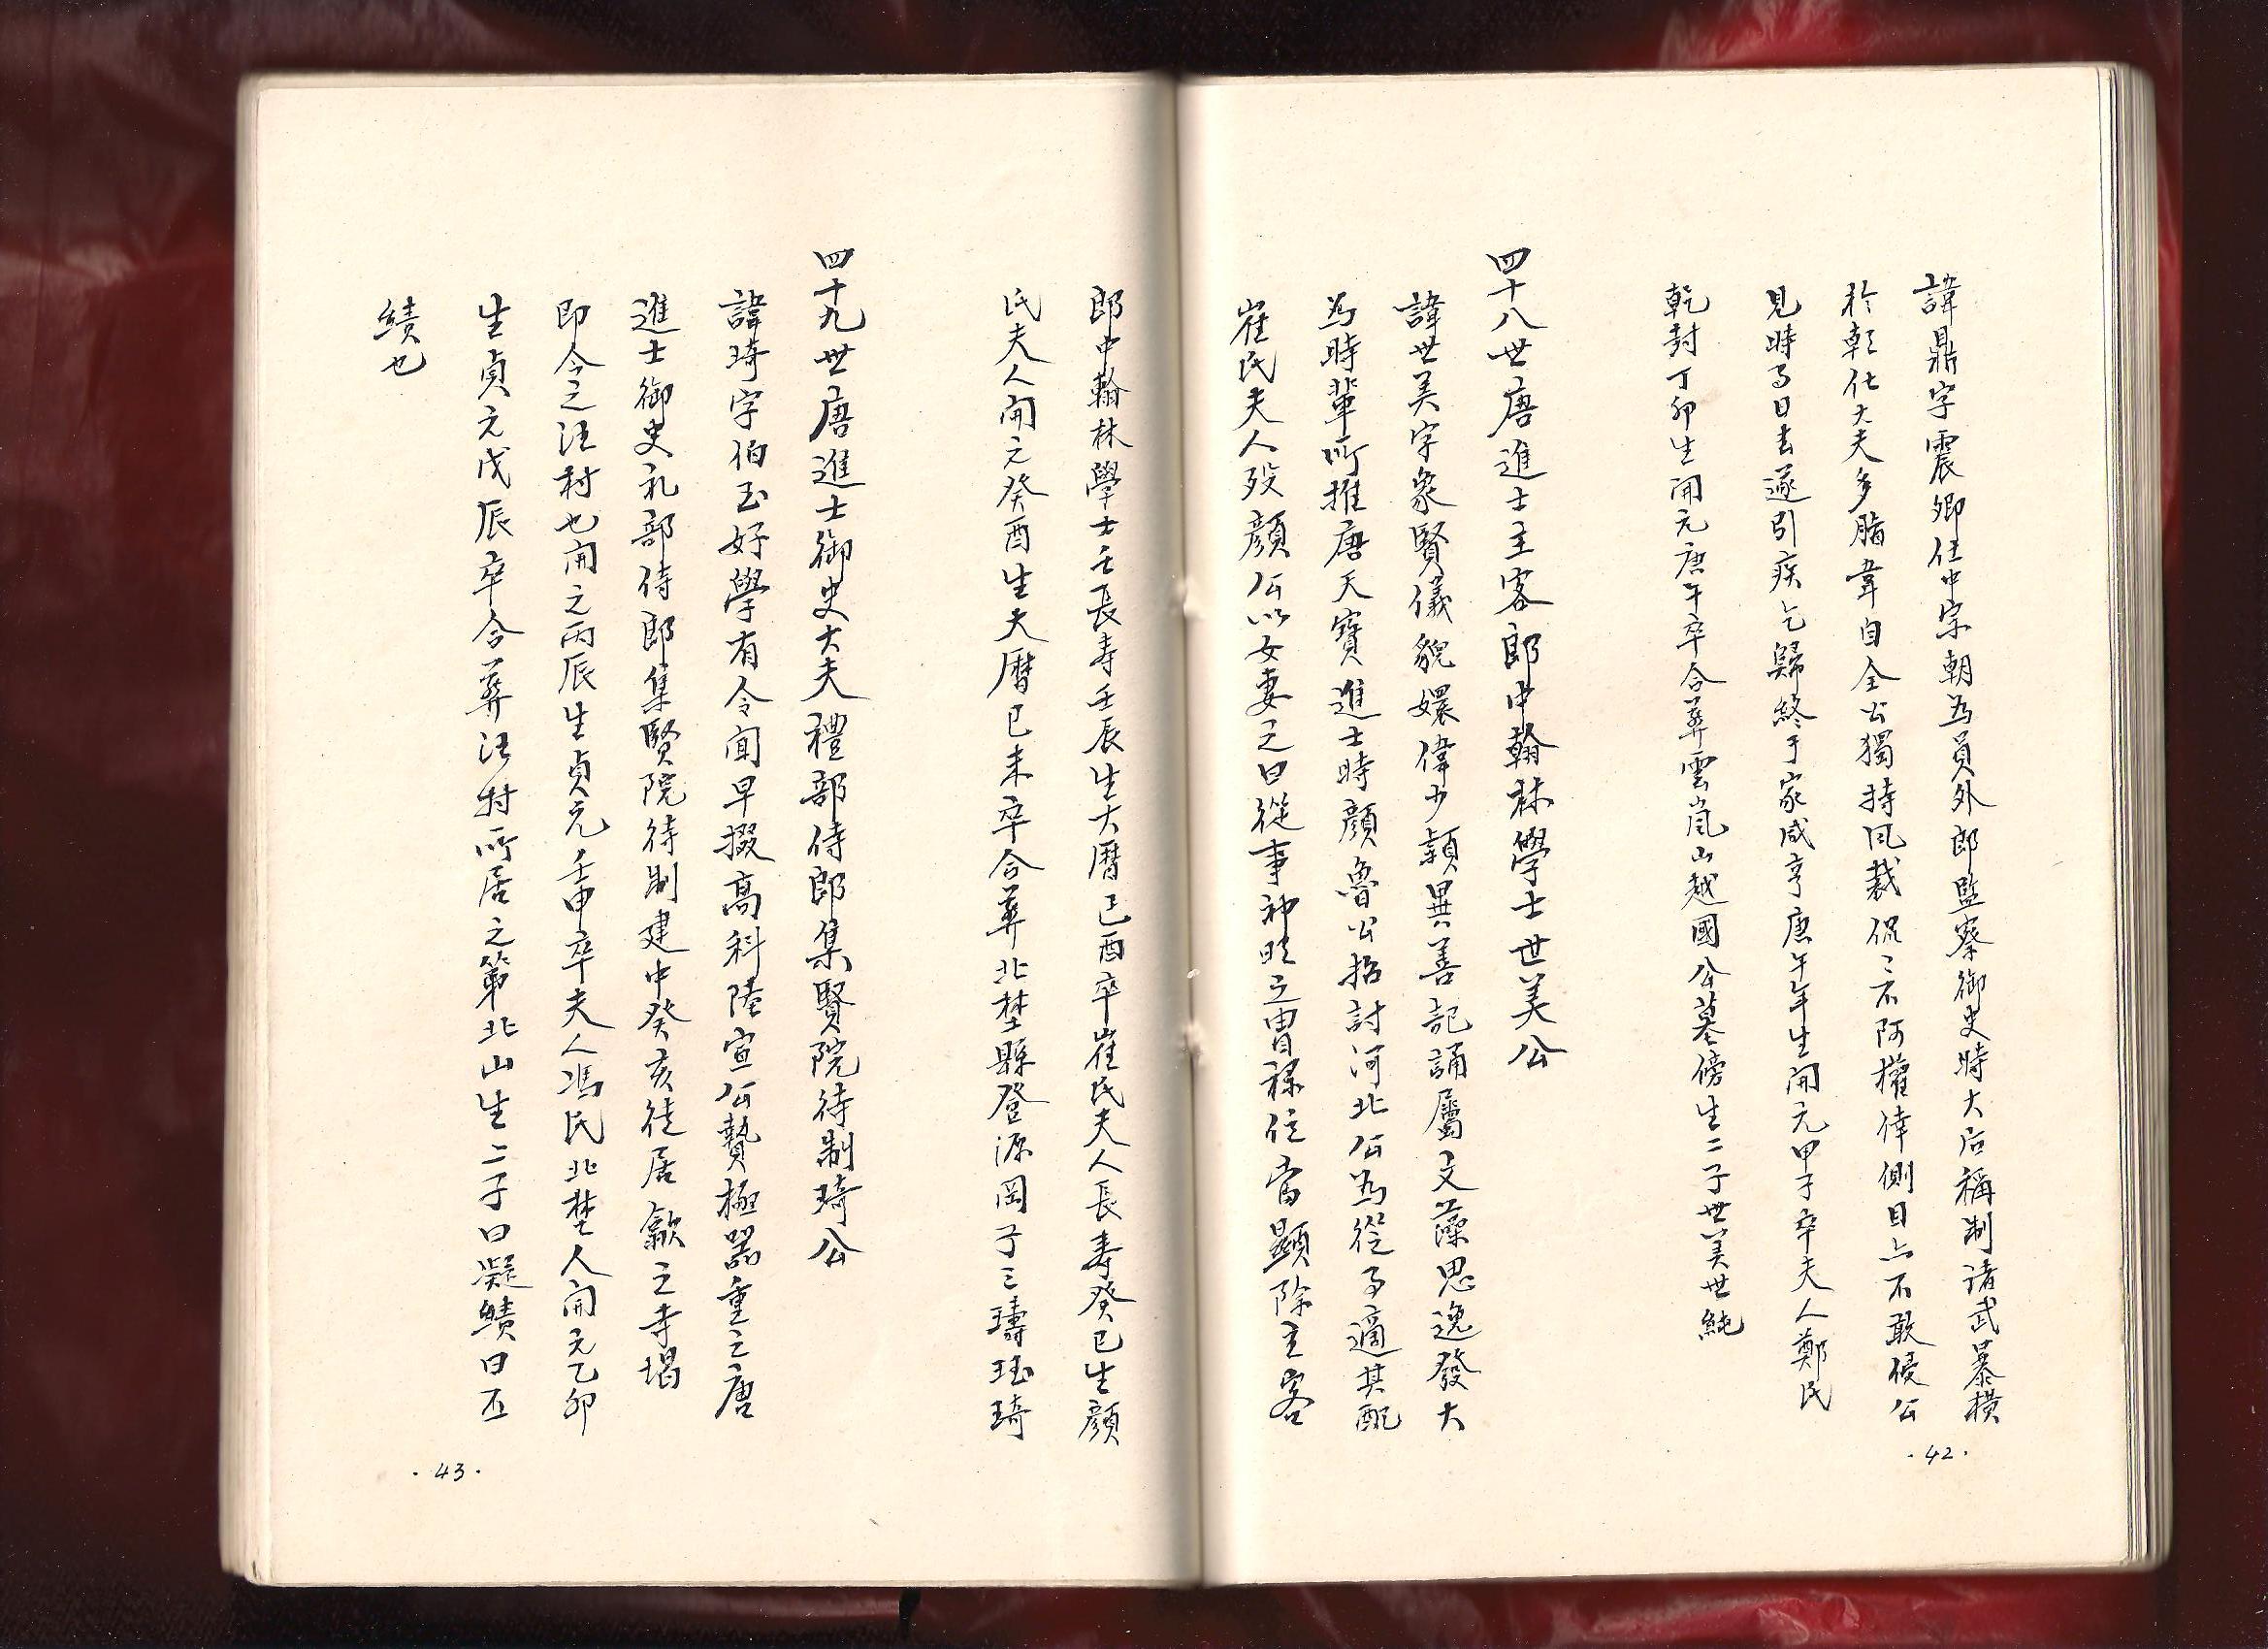 諱鼎字震卿仕中宗朝為員外郎監察御史時大后稱制諸武暴橫
於朝仕大夫多脂韋自全公獨持風裁侃〻不阿權倖側目亦不敢侵公
見時事日去遂引疾乞歸終于家咸亨庚午年生開元甲子卒夫人鄭氏
乾封丁卯生開元庚午卒合葬雲嵐山越國公墓傍生二子世美世純
四十八世唐進士主客郎中翰林學士世美公
諱世美字象賢儀貌嬛偉少穎異善記誦屬文藻思逸發大
為時輩所推唐天寶進士時顏魯公招討河北公為從事適其配
崔氏夫人歿顏公以女妻之曰從事神明之冑祿位當顯除主客
·42·
郎中翰林學士壬長壽壬辰生大曆己酉卒崔氏夫人長壽癸巳生顏
氏夫人開元癸酉生大曆己未卒合葬北埜縣登源岡子三璹珤琦
四十九世唐進士御史大夫禮部侍郎集賢院待制琦公
諱琦字伯玉好學有令聞早掇高科陸宣公贄極器重之唐
進士御史礼部侍郎集賢院待制建中癸亥徙居歙之寺堨
即今之汪村也開元丙辰生貞元壬申卒夫人馮氏北埜人開元乙卯
生貞元戊辰卒合葬汪村所居之第北山生二子曰凝績曰丕
績也
·43·